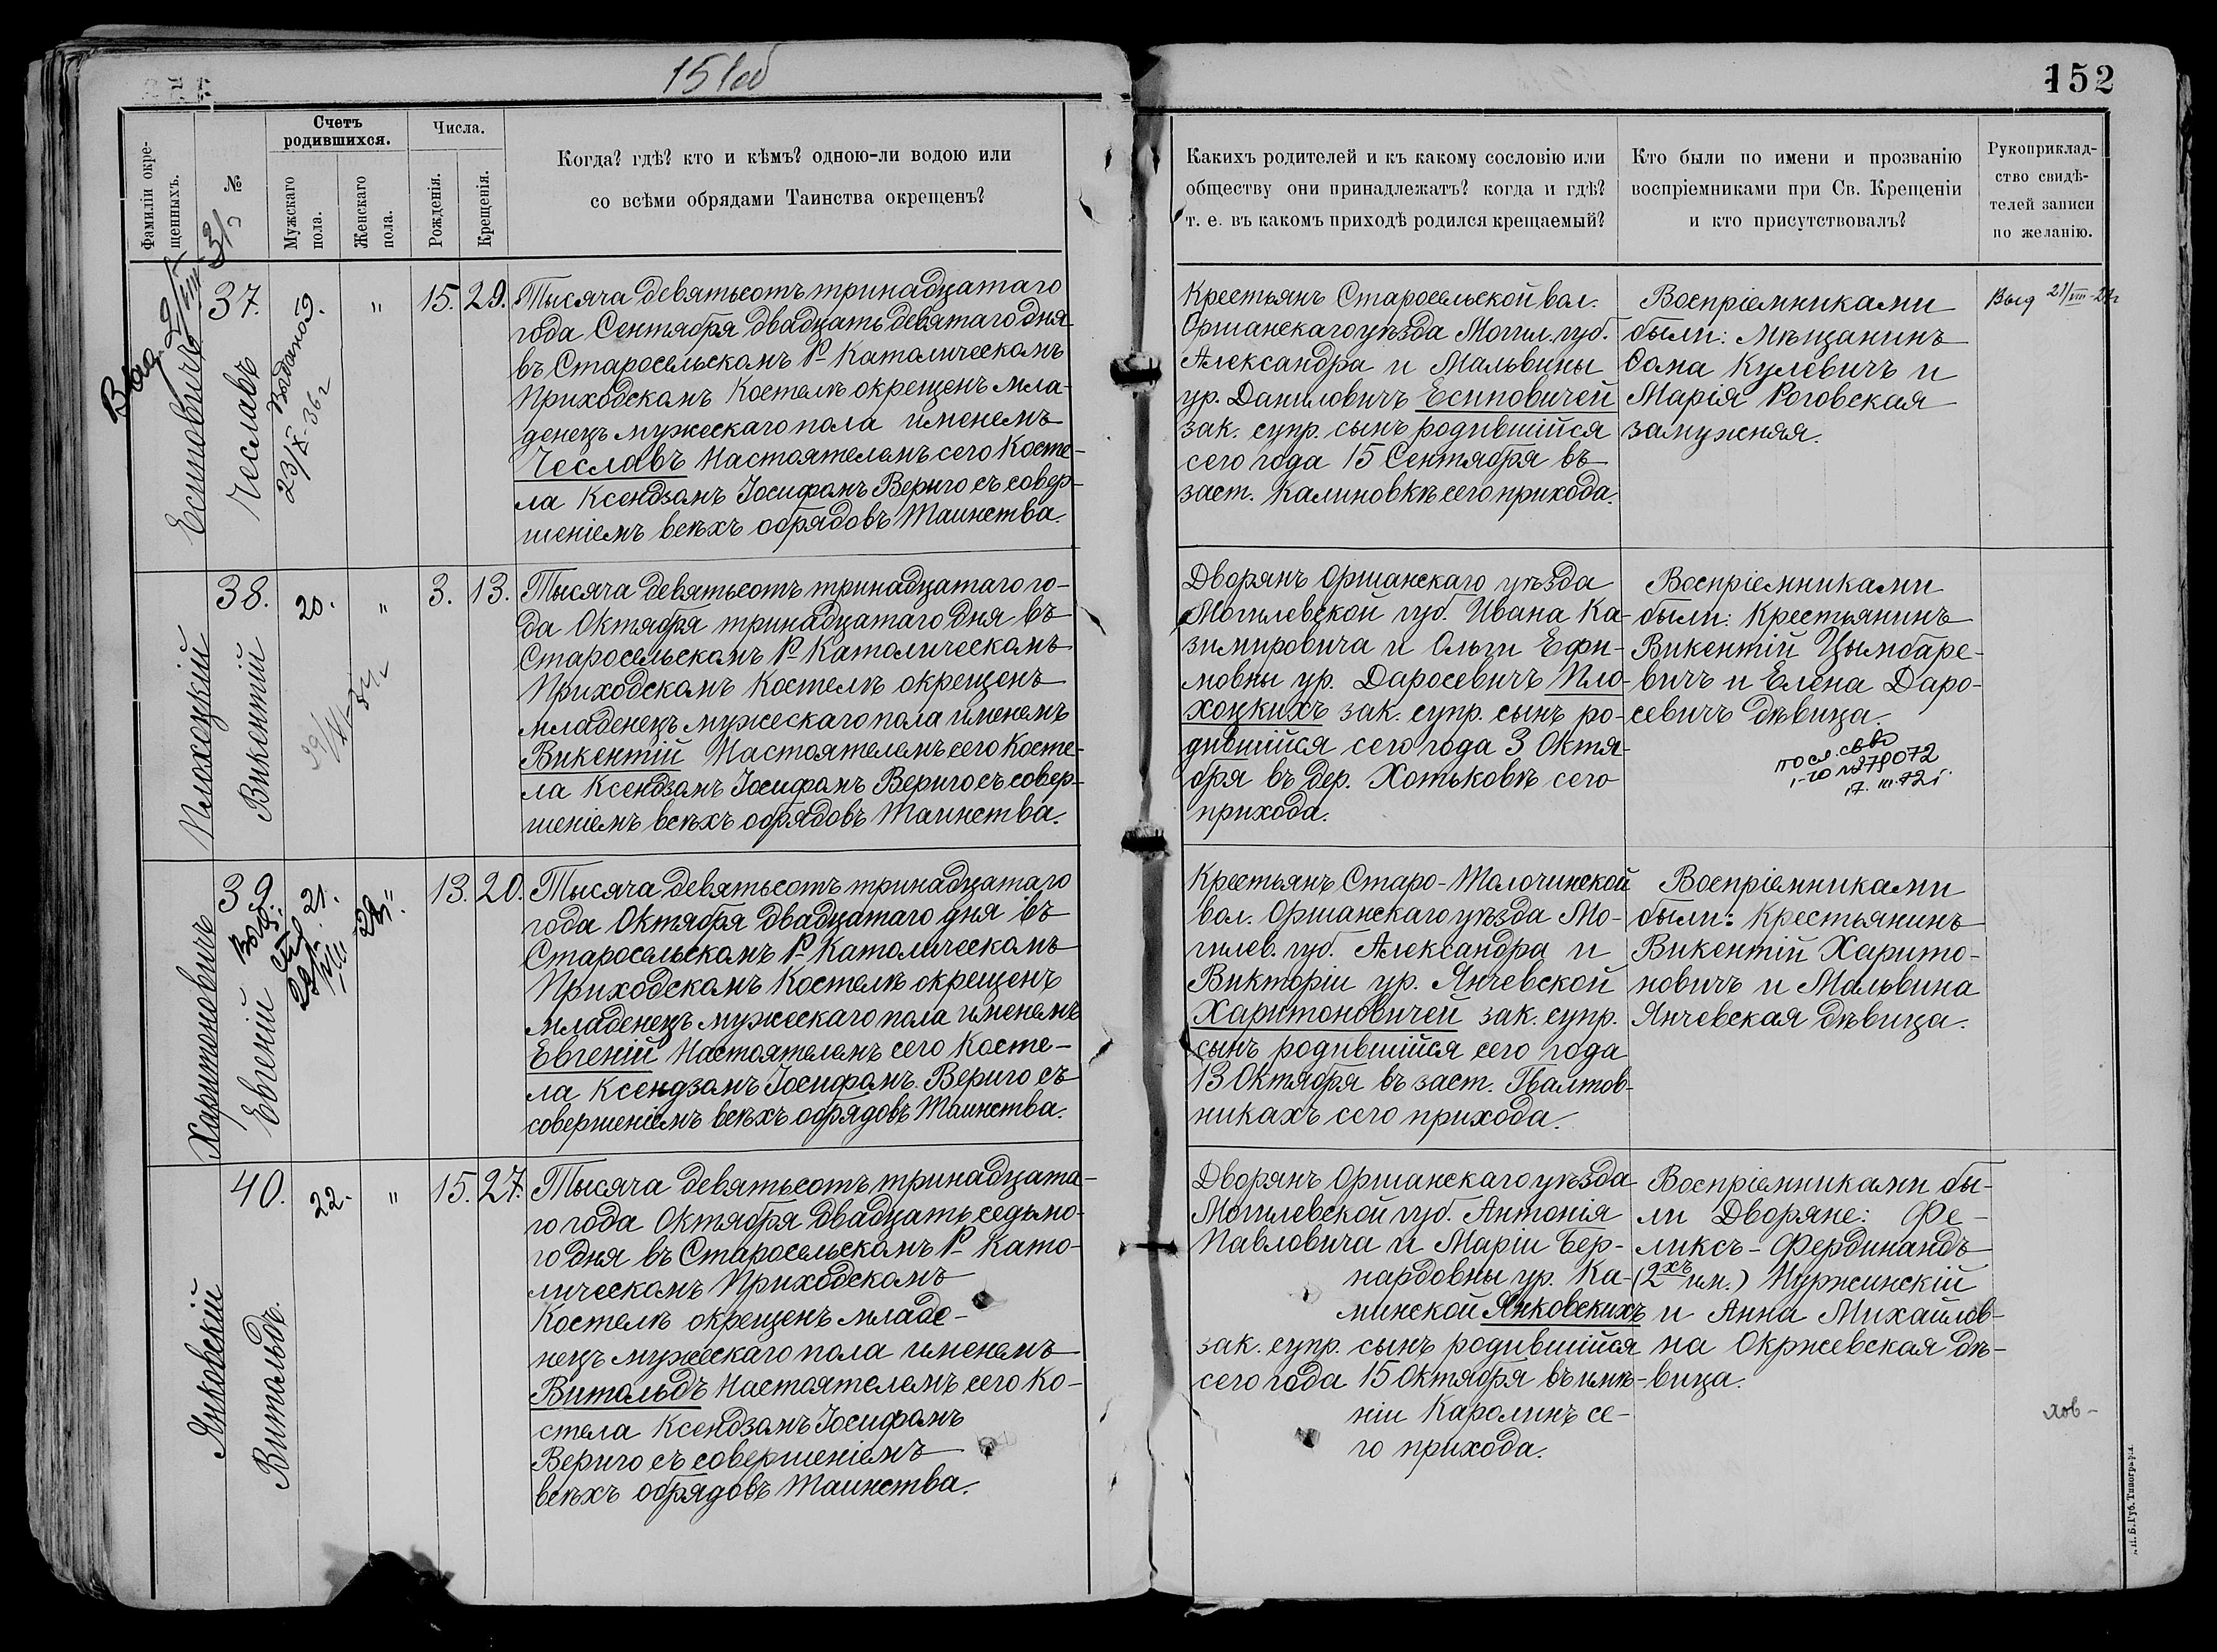 151об
152
Фамиліи окре-
щенныхъ.
№
Счетъ
родившихся.
Мужскаго
пола.
Женскаго
пола.
Числа.
Рожденія.
Крещенія.
Когда? гдѣ? кто и кѣмъ? одною-ли водою или
со всѣми обрядами Таинства окрещенъ?
Какихъ родителей и къ какому сословію или
обществу они принадлежатъ? когда и гдѣ?
т. е. въ какомъ приходѣ родился крещаемый?
Кто были по имени и прозванію
воспріемниками при Св. Крещеніи
и кто присутствовалъ?
Рукоприклад-
ство свидѣ-
телей записи
по желанію.
Есиповичъ
Чеславъ
Выдано
23/IX-36г
37.
19.
"
15.
29.
Тысяча девятьсотъ тринадцатаго
года Сентября двадцать девятаго дня
въ Старосельскомъ Р-Католическомъ
Приходскомъ Костелѣ окрещенъ мла-
денецъ мужескаго пола именемъ
Чеславъ Настоятелемъ сего Косте-
ла Ксендзомъ Іосифомъ Вериго съ совер-
шеніемъ всѣхъ обрядовъ Таинства.
Крестьянъ Старосельской вол.
Оршанскаго уѣзда Могил. губ.
Александра и Мальвины
ур. Даниловичъ Есиповичей
зак. супр. сынъ родившійся
сего года 15 Сентября въ
заст. Калиновкѣ сего прихода.
Воспріемниками
были: Мѣщанинъ
Ѳома Кулевичъ и
Марія Роговская
замужняя.
Выд 21/VIII-24г
Плохоцкій
Викентій
38.
20.
"
3.
13.
Тысяча девятьсотъ тринадцатаго го-
да Октября тринадцатаго дня въ
Старосельскомъ Р-Католическомъ
Приходскомъ Костелѣ окрещенъ
младенецъ мужескаго пола именемъ
Викентій Настоятелемъ сего Косте-
ла Ксендзомъ Іосифомъ Вериго съ совер-
шеніемъ всѣхъ обрядовъ Таинства.
Дворянъ Оршанскаго уѣзда
Могилевской губ. Ивана Ка-
зимировича и Ольги Ефи-
мовны ур. Даросевичъ Пло-
хоцкихъ зак. супр. сынъ ро-
дившійся сего года 3 Октя-
бря въ дер. Хотьковкѣ сего
прихода.
Воспріемниками
были: Крестьянинъ
Викентій Цымбаре-
вичъ и Елена Даро-
севичъ дѣвица.
Харитоновичъ
Евгеній
39.
21.
"
13.
20.
Тысяча девятьсотъ тринадцатаго
года Октября двадцатаго дня въ
Старосельскомъ Р-Католическомъ
Приходскомъ Костелѣ окрещенъ
младенецъ мужескаго пола именемъ
Евгеній Настоятелемъ сего Косте-
ла Ксендзомъ Іосифомъ Вериго съ
совершеніемъ всѣхъ обрядовъ Таинства.
Крестьянъ Старо-Толочинской
вол. Оршанскаго уѣзда Мо-
гилев. губ. Александра и
Викторіи ур. Янчевской
Харитоновичей зак. супр.
сынъ родившійся сего года
13 Октября въ заст. Гвалтов-
никахъ сего прихода.
Воспріемниками
были: Крестьянинъ
Викентій Харито-
новичъ и Мальвина
Янчевская дѣвица.
Янковскій
Витольдъ.
40.
22.
"
15.
27.
Тысяча девятьсотъ тринадцата-
го года Октября двадцать седьмо-
го дня въ Старосельскомъ Р-Като-
лическомъ Приходскомъ
Костелѣ окрещенъ младе-
нецъ мужескаго пола именемъ
Витольдъ Настоятелемъ сего Ко-
стела Ксендзомъ Іосифомъ
Вериго съ совершеніемъ
всѣхъ обрядовъ Таинства.
Дворянъ Оршанскаго уѣзда
Могилевской губ. Антонія
Павловича и Маріи Бер-
нардовны ур. Ка-
минской Янковскихъ
зак. супр. сынъ родившійся
сего года 15 Октября въ имѣ-
ніи Каролинъ се-
го прихода.
Воспріемниками бы-
ли Дворяне: Фе-
ликсъ-Фердинандъ
(2хъ им.) Нуржинскій
и Анна Михайлов-
на Окржевская дѣ-
вица.